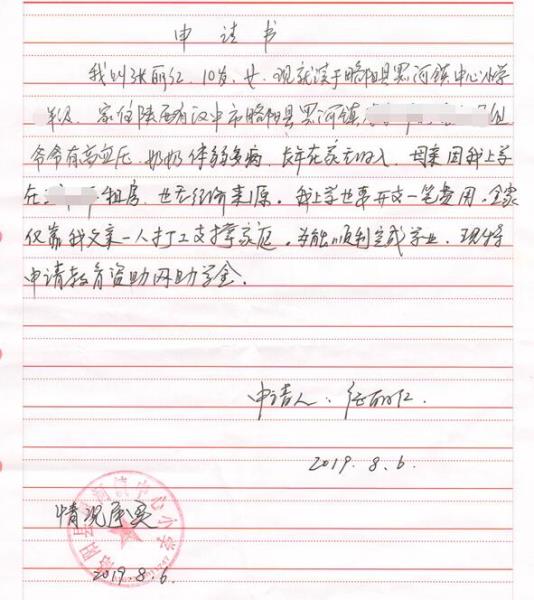 申请书
我叫张丽红，10岁，女，现就读于略阳县黑河镇中心小学
年级，家住陕西省汉中市略阳县黑河镇 组
爷爷有高血压，奶奶体弱多病，长年在家无收入，母亲因我上学
在 租房，也无经济来源。我上学也要开支一笔费用，全家
仅靠我父亲一人打工支撑家庭，为能顺利完成学业，现特
申请教育资助网助学金.
申请人：丽红
2019.8.6.
情况属实
略阳县黑河镇中心小学
2019.8.6.